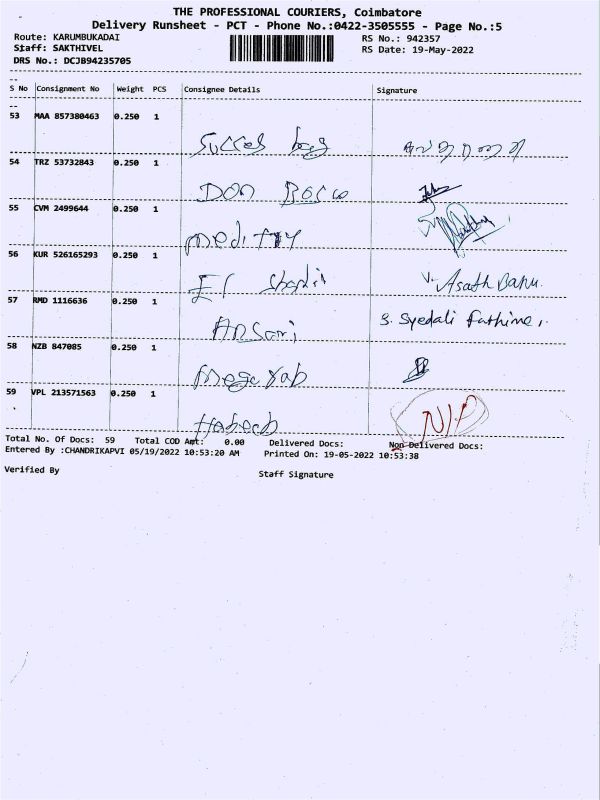 THE PROFESSIONAL COURIERS, Coimbatore
Delivery Runsheet - PCT - Phone No.:0422-3505555 - Page No.:5
Route: KARUMBUKADAI RS No.: 942357
Staff: SAKTHIVEL RS Date: 19-May-2022
DRS No.: DCJB94235705
S No Consignment No Weight PCS Consignee Details Signature
53 MAA 857380463 0.250 1
54 TRZ 53732843 0.250 1
DON BOSCO
55 CVM 2499644 0.250 1
56 KUR 526165293 0.250 1
El V. Asath Banu.
57 RMD 1116636 0.250 1
Ansari S. Syedali Fathima,
58 NZB 847085 0.250 1
59 VPL 213571563 0.250 1
Habeeb N/P
Total No. Of Docs: 59 Total COD Amt: 0.00 Delivered Docs: Non Delivered Docs:
Entered By :CHANDRIKAPVI 05/19/2022 10:53:20 AM Printed On: 19-05-2022 10:53:38
Verified By Staff Signature